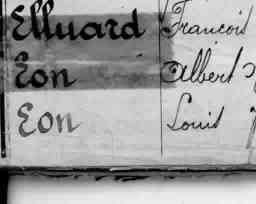 Elluard François
Eon Albert
Eon Louis